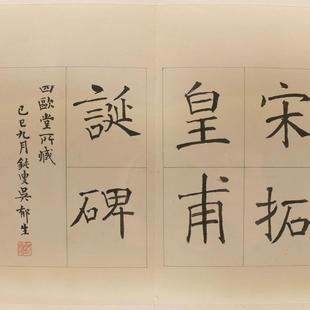 宋拓
皇甫
誕碑
四歐堂所藏
己巳九月鈍叟吳郁生